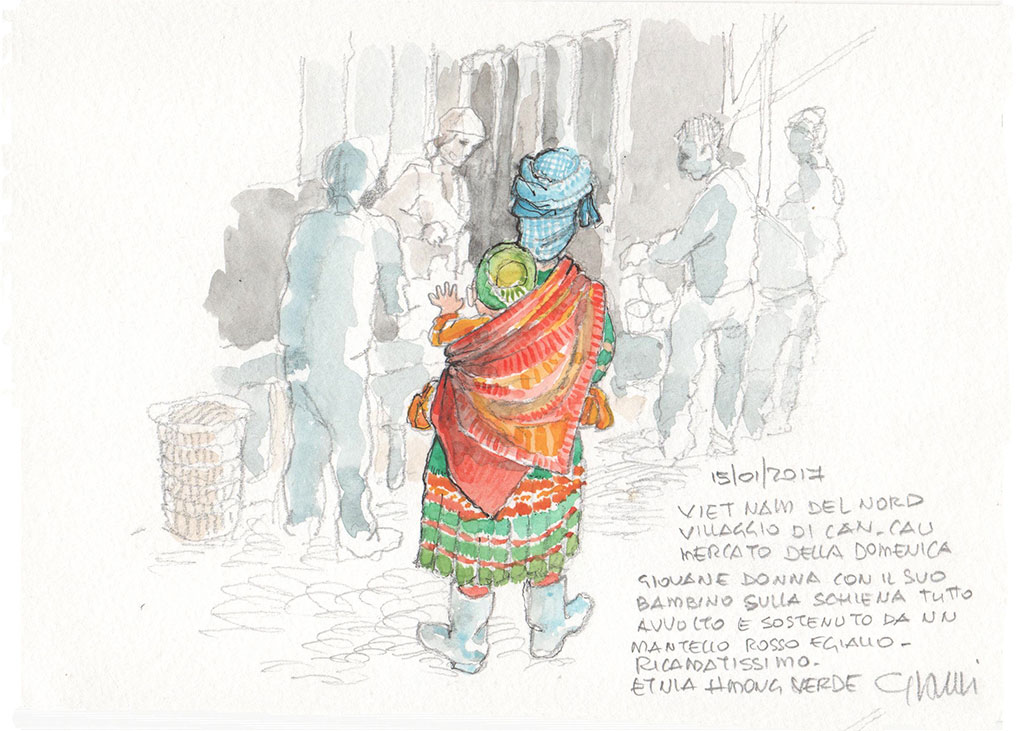 15/01/2017
VIET NAM DEL NORD
VILLAGGIO DI CAN-CAU
MERCATO DELLA DOMENICA
GIOVANE DONNA CON IL SUO
BAMBINO SULLA SCHIENA TUTTO
AVVOLTO E SOSTENUTO DA UN
MANTELLO ROSSO E GIALLO-
RICAMATISSIMO-
ETNIA HMONG VERDE Gianni